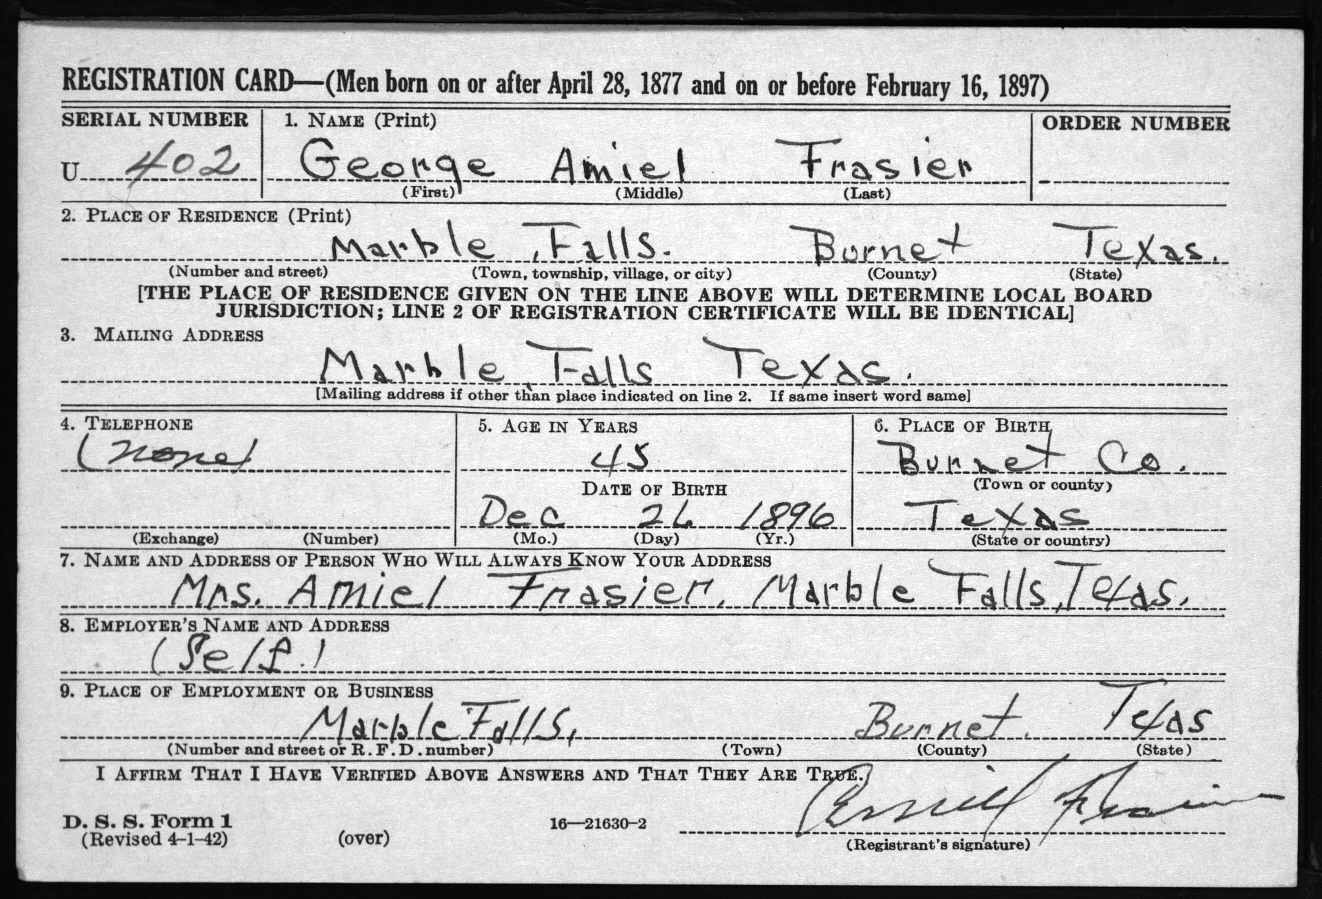 REGISTRATION CARD—(Men born on or after April 28, 1877 and on or before February 16, 1897)
SERIAL NUMBER 1. NAME (Print) ORDER NUMBER
U 402 George Amiel Frasier
(First) (Middle) (Last)
2. PLACE OF RESIDENCE (Print)
Marble Falls. Burnet Texas.
(Number and street) (Town, township, village, or city) (County) (State)
[THE PLACE OF RESIDENCE GIVEN ON THE LINE ABOVE WILL DETERMINE LOCAL BOARD
JURISDICTION; LINE 2 OF REGISTRATION CERTIFICATE WILL BE IDENTICAL]
3. MAILING ADDRESS
Marble Falls Texas.
[Mailing address if other than place indicated on line 2. If same insert word same]
4. TELEPHONE 5. AGE IN YEARS 6. PLACE OF BIRTH
(none) 45 Burnet Co.
DATE OF BIRTH (Town or county)
Dec 26 1896 Texas
(Exchange) (Number) (Mo.) (Day) (Yr.) (State or country)
7. NAME AND ADDRESS OF PERSON WHO WILL ALWAYS KNOW YOUR ADDRESS
Mrs. Amiel Frasier, Marble Falls, Texas.
8. EMPLOYER'S NAME AND ADDRESS
(Self.)
9. PLACE OF EMPLOYMENT OR BUSINESS
Marble Falls, Burnet. Texas
(Number and street or R. F. D. number) (Town) (County) (State)
I AFFIRM THAT I HAVE VERIFIED ABOVE ANSWERS AND THAT THEY ARE TRUE.
D. S. S. Form 1
(Revised 4-1-42) (over) 16—21630-2
(Registrant's signature)